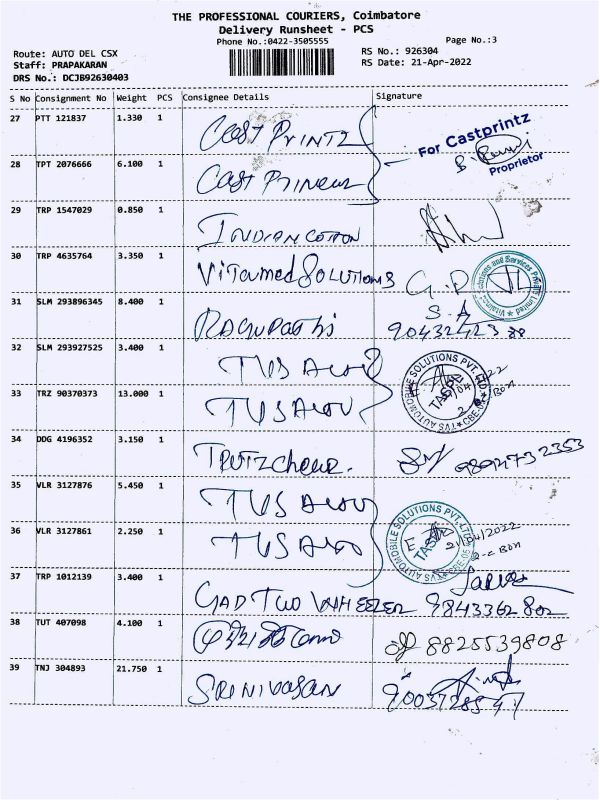 THE PROFESSIONAL COURIERS, Coimbatore
Delivery Runsheet - PCS
Phone No.:0422-3505555
Page No.:3
Route: AUTO DEL CSX
RS No.: 926304
Staff: PRAPAKARAN
RS Date: 21-Apr-2022
DRS No.: DCJB92630403
S No Consignment No Weight PCS Consignee Details Signature
27 PTT 121837 1.330 1
CAST PRINTZ
For Castprintz
Proprietor
28 TPT 2076666 6.100 1
CAST
29 TRP 1547029 0.850 1
INDIAN COTTON
30 TRP 4635764 3.350 1
Vitamed SOLUTIONS
31 SLM 293896345 8.400 1
RAGHUPATHI
32 SLM 293927525 3.400 1
TVS
AUTOMOBILE SOLUTIONS PVT. LTD.
33 TRZ 90370373 13.000 1
TVS
34 DDG 4196352 3.150 1
9894732353
35 VLR 3127876 5.450 1
TVS
AUTOMOBILE SOLUTIONS PVT. LTD.
36 VLR 3127861 2.250 1
TVS
21/04/2022
37 TRP 1012139 3.400 1
TWO WHEELER 9843362802
38 TUT 407098 4.100 1
8825539808
39 TNJ 304893 21.750 1
SRINIVASAN